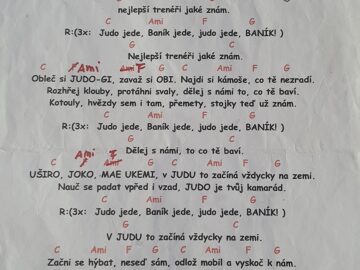 G C
nejlepší trenéři jaké znám.
C Ami F G
R:(3x: Judo jede, Baník jede, judo jede, BANÍK! )
G C
Nejlepší trenéři jaké znám.
C Ami F G
Obleč si JUDO-GI, zavaž si OBI. Najdi si kámoše, co tě nezradí.
Rozhřej klouby, protáhni svaly, dělej s námi to, co tě baví.
Kotouly, hvězdy sem i tam, přemety, stojky teď už znám.
C Ami F G
R:(3x: Judo jede, Baník jede, judo jede, BANÍK! )
G C
Dělej s námi, to co tě baví.
C Ami F G
UŠIRO, JOKO, MAE UKEMI, v JUDU to začíná vždycky na zemi.
Nauč se padat vpřed i vzad, JUDO je tvůj kamarád.
C Ami F G
R:(3x: Judo jede, Baník jede, judo jede, BANÍK! )
G C
V JUDU to začíná vždycky na zemi.
C Ami F G C Ami F G
Začni se hýbat, neseď sám, odlož mobil a vyskoč k nám.